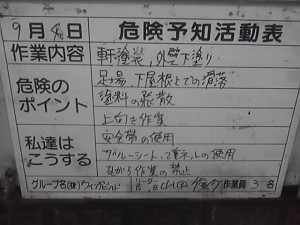 9月 日 危険予知活動表
作業内容 軒塗装,外壁下塗り
危険の
ポイント
足場、下屋根上での滑落
塗料の飛散
上向き作業
私達は
こうする
安全帯の使用
ブルーシート、養生ネットの使用
ながら作業の禁止
グループ名 (株)ウィズビルド リーダー 作業員 3名